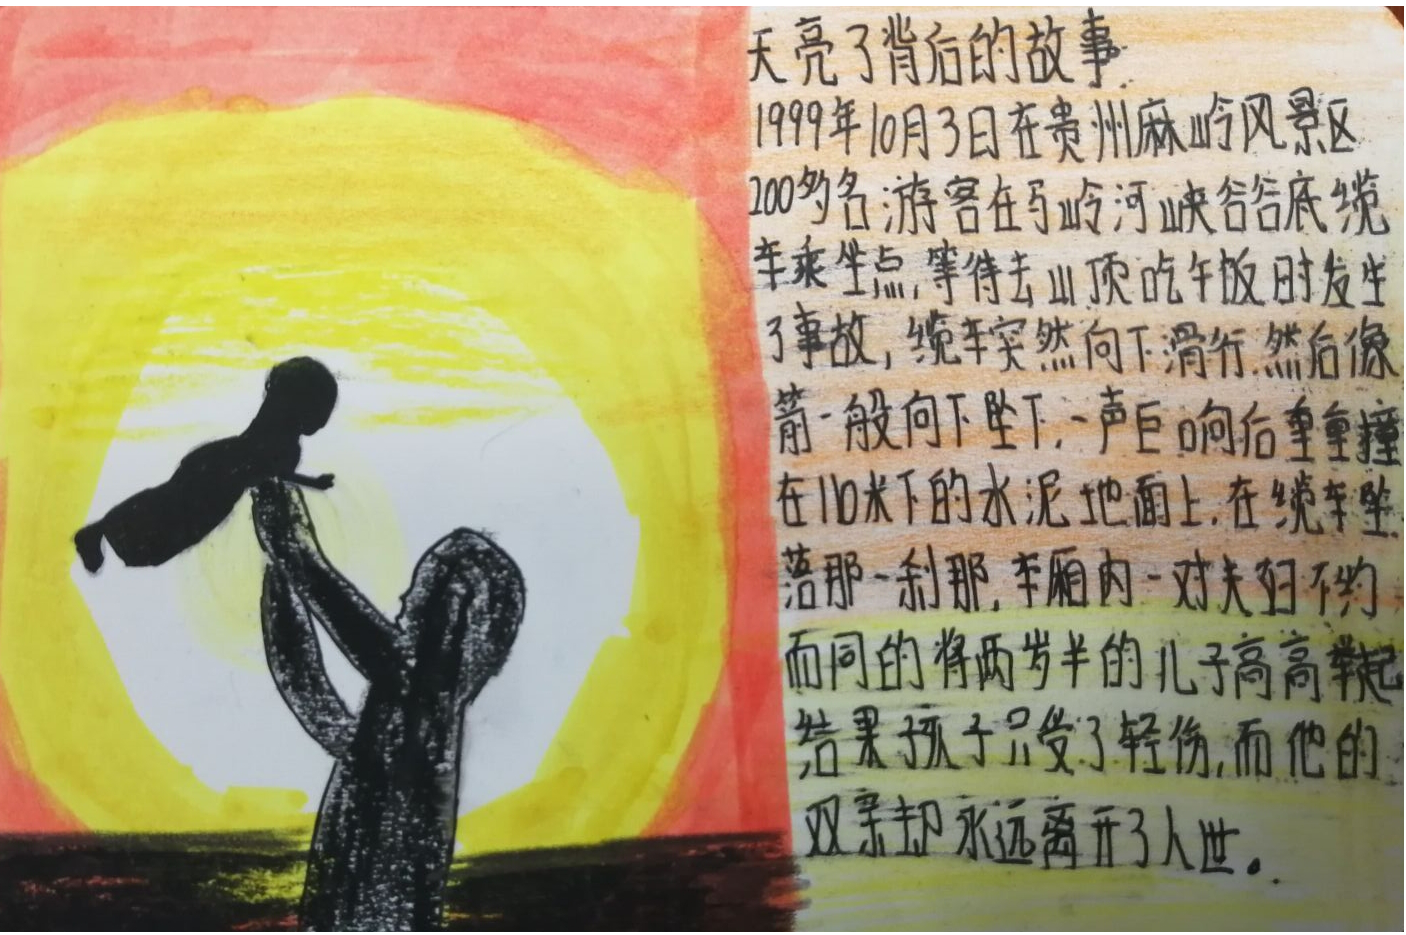 天亮了背后的故事
1999年10月3日在贵州麻岭风景区
200多名游客在马岭河峡谷谷底缆
车乘坐点,等待去山顶吃午饭时发生
了事故,缆车突然向下滑行.然后像
箭一般向下坠下,一声巨响后重重撞
在110米下的水泥地面上.在缆车坠
落那一刹那,车厢内一对夫妇不约
而同的将两岁半的儿子高高举起
结果孩子只受了轻伤,而他的
双亲却永远离开了人世。